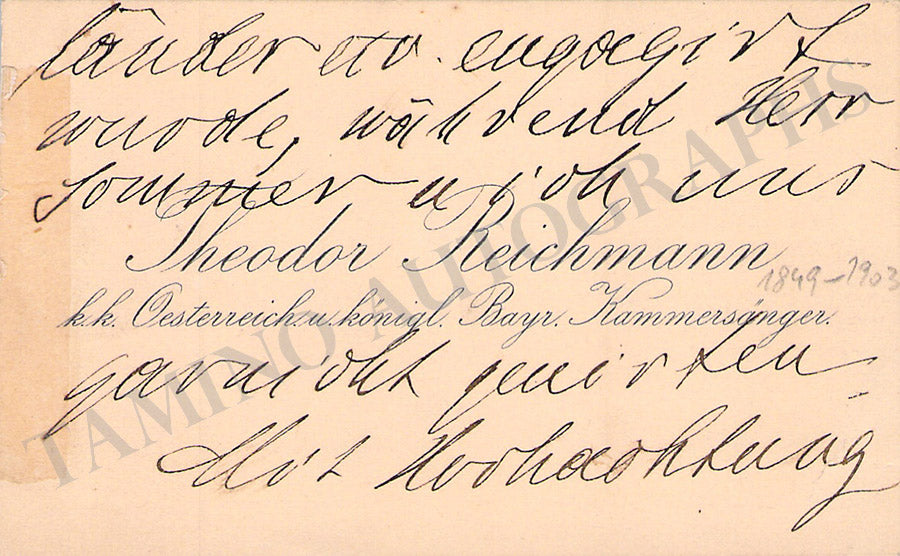 länder etc. engagirt
wurde, während Herr
Sommer u ich uns
Theodor Reichmann
1849–1903
k.k. Oesterreich. u. königl. Bayr. Kammersänger.
garnicht genirten
Mit Hochachtung
TAMINO AUTOGRAPHS